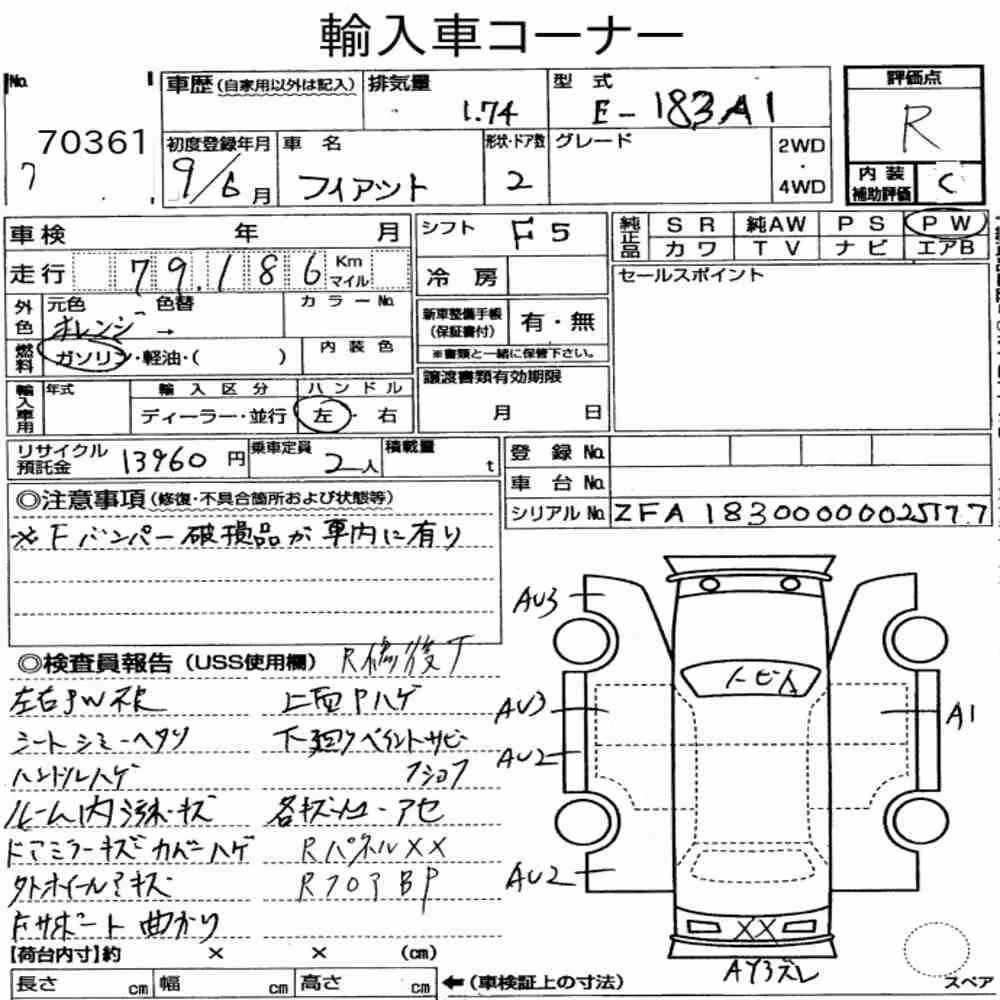 輸入車コーナー
No.
70361
7
車歴 (自家用以外は記入)
排気量
1.74
型式
E-183A1
評価点
R
初度登録年月
9/6月
車名
フィアット
形状・ドア数
2
グレード
2WD
・
4WD
内装
補助評価
C
車検 年 月
シフト
F5
純正品
SR 純AW PS PW
カワ TV ナビ エアB
走行
79,186
Km
マイル
冷房
セールスポイント
外色
元色 色替 カラーNo.
オレンジ →
新車整備手帳
(保証書付)
有・無
※書類と一緒に保管下さい。
燃料
ガソリン・軽油・( )
内装色
譲渡書類有効期限
月 日
輸入車用
年式
輸入区分
ハンドル
ディーラー・並行
左・右
リサイクル
預託金
13960円
乗車定員
2人
積載量
t
登録No.
車台No.
シリアルNo. ZFA18300000025177
◎注意事項 (修復・不具合箇所および状態等)
※Fバンパー破損品が車内に有り
◎検査員報告 (USS使用欄)
R修復
左右PW不良
上面Pハゲ
シートシミーヘタリ
下廻りペイントサビ
ハンドルハゲ
ルーム内汚れ・キズ
ドアミラーキズカバーハゲ
RパネルXX
RフロアBP
Fサポート曲がり
AU3
AU3
AU2
AU2
トビA
A1
XX
AY3ズレ
【荷台内寸】約 × × (cm)
長さ cm 幅 cm 高さ cm
←(車検証上の寸法)
スペア